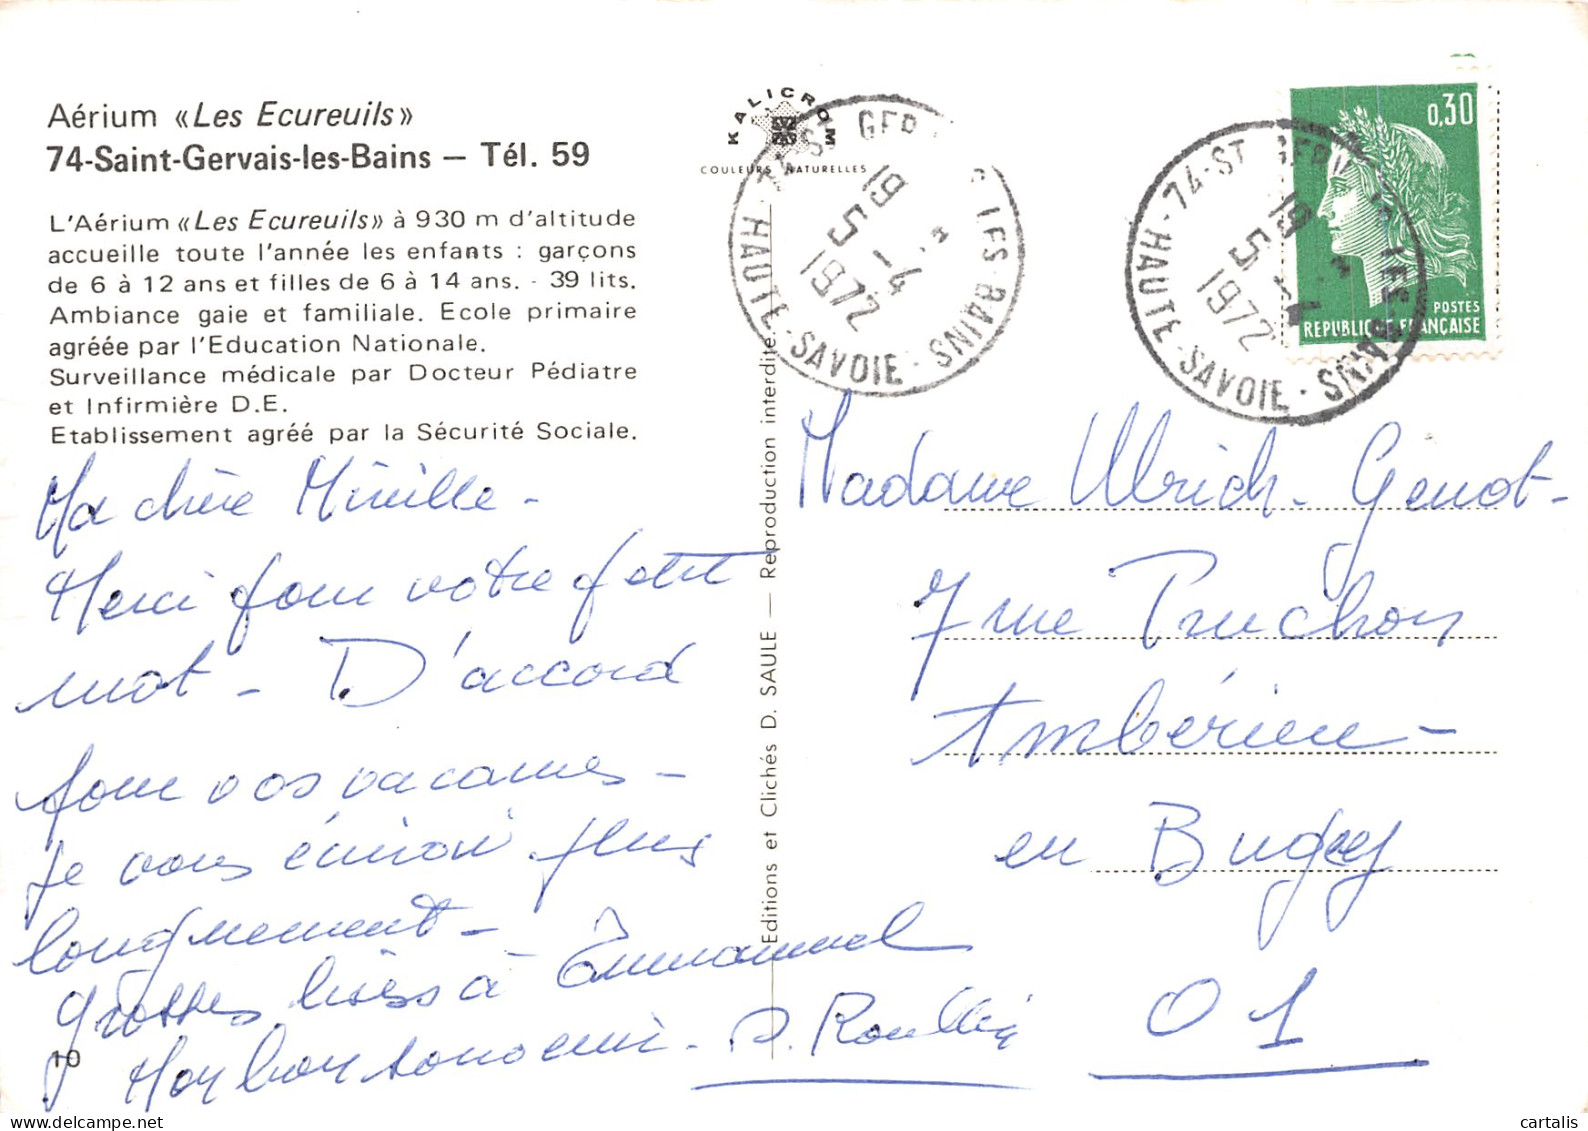 Aérium «Les Ecureuils»
74-Saint-Gervais-les-Bains — Tél. 59
L'Aérium «Les Ecureuils» à 930 m d'altitude
accueille toute l'année les enfants : garçons
de 6 à 12 ans et filles de 6 à 14 ans. - 39 lits.
Ambiance gaie et familiale. Ecole primaire
agréée par l'Education Nationale.
Surveillance médicale par Docteur Pédiatre
et Infirmière D.E.
Etablissement agréé par la Sécurité Sociale.
Ma chère Mireille -
Merci pour votre petit
mot - D'accord
pour vos vacances -
Je vous écrirai plus
longuement -
Grosses bises à Emmanuel
Mon bon souvenir -
10
Editions et Clichés D. SAULE — Reproduction interdite
KALICROM
COULEURS NATURELLES
74-ST GER LES-BAINS
19
5-4
1972
HAUTE-SAVOIE
0,30
POSTES
REPUBLIQUE FRANÇAISE
74-ST GERV LES-BAINS
19
5
1972
HAUTE-SAVOIE
Madame Ulrich-Genot-
7 rue Pruchon
Ambérieu -
en Bugey
01
cartalis